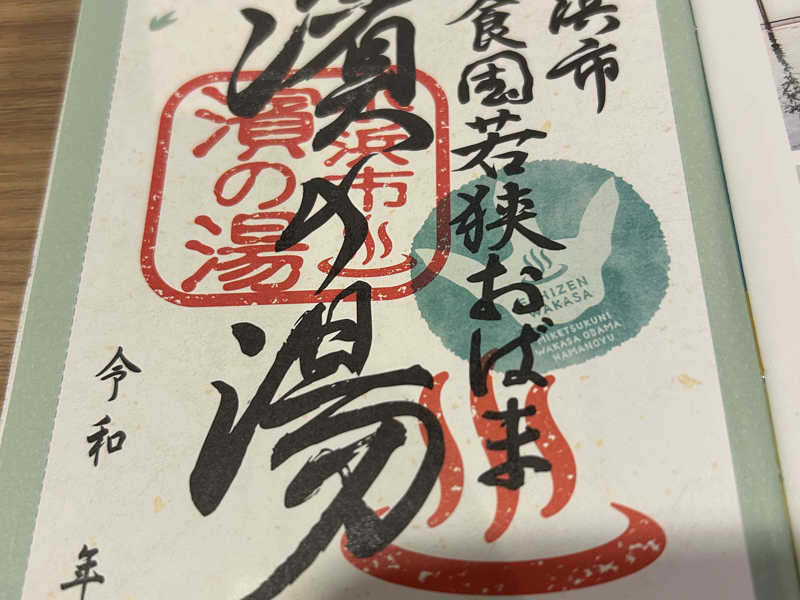 浜市
食国若狭おばま
濱の湯
浜市
濱の湯
WAKASA
MIKETSUKUNI
WAKASA OBAMA
HAMANOYU
令和
年